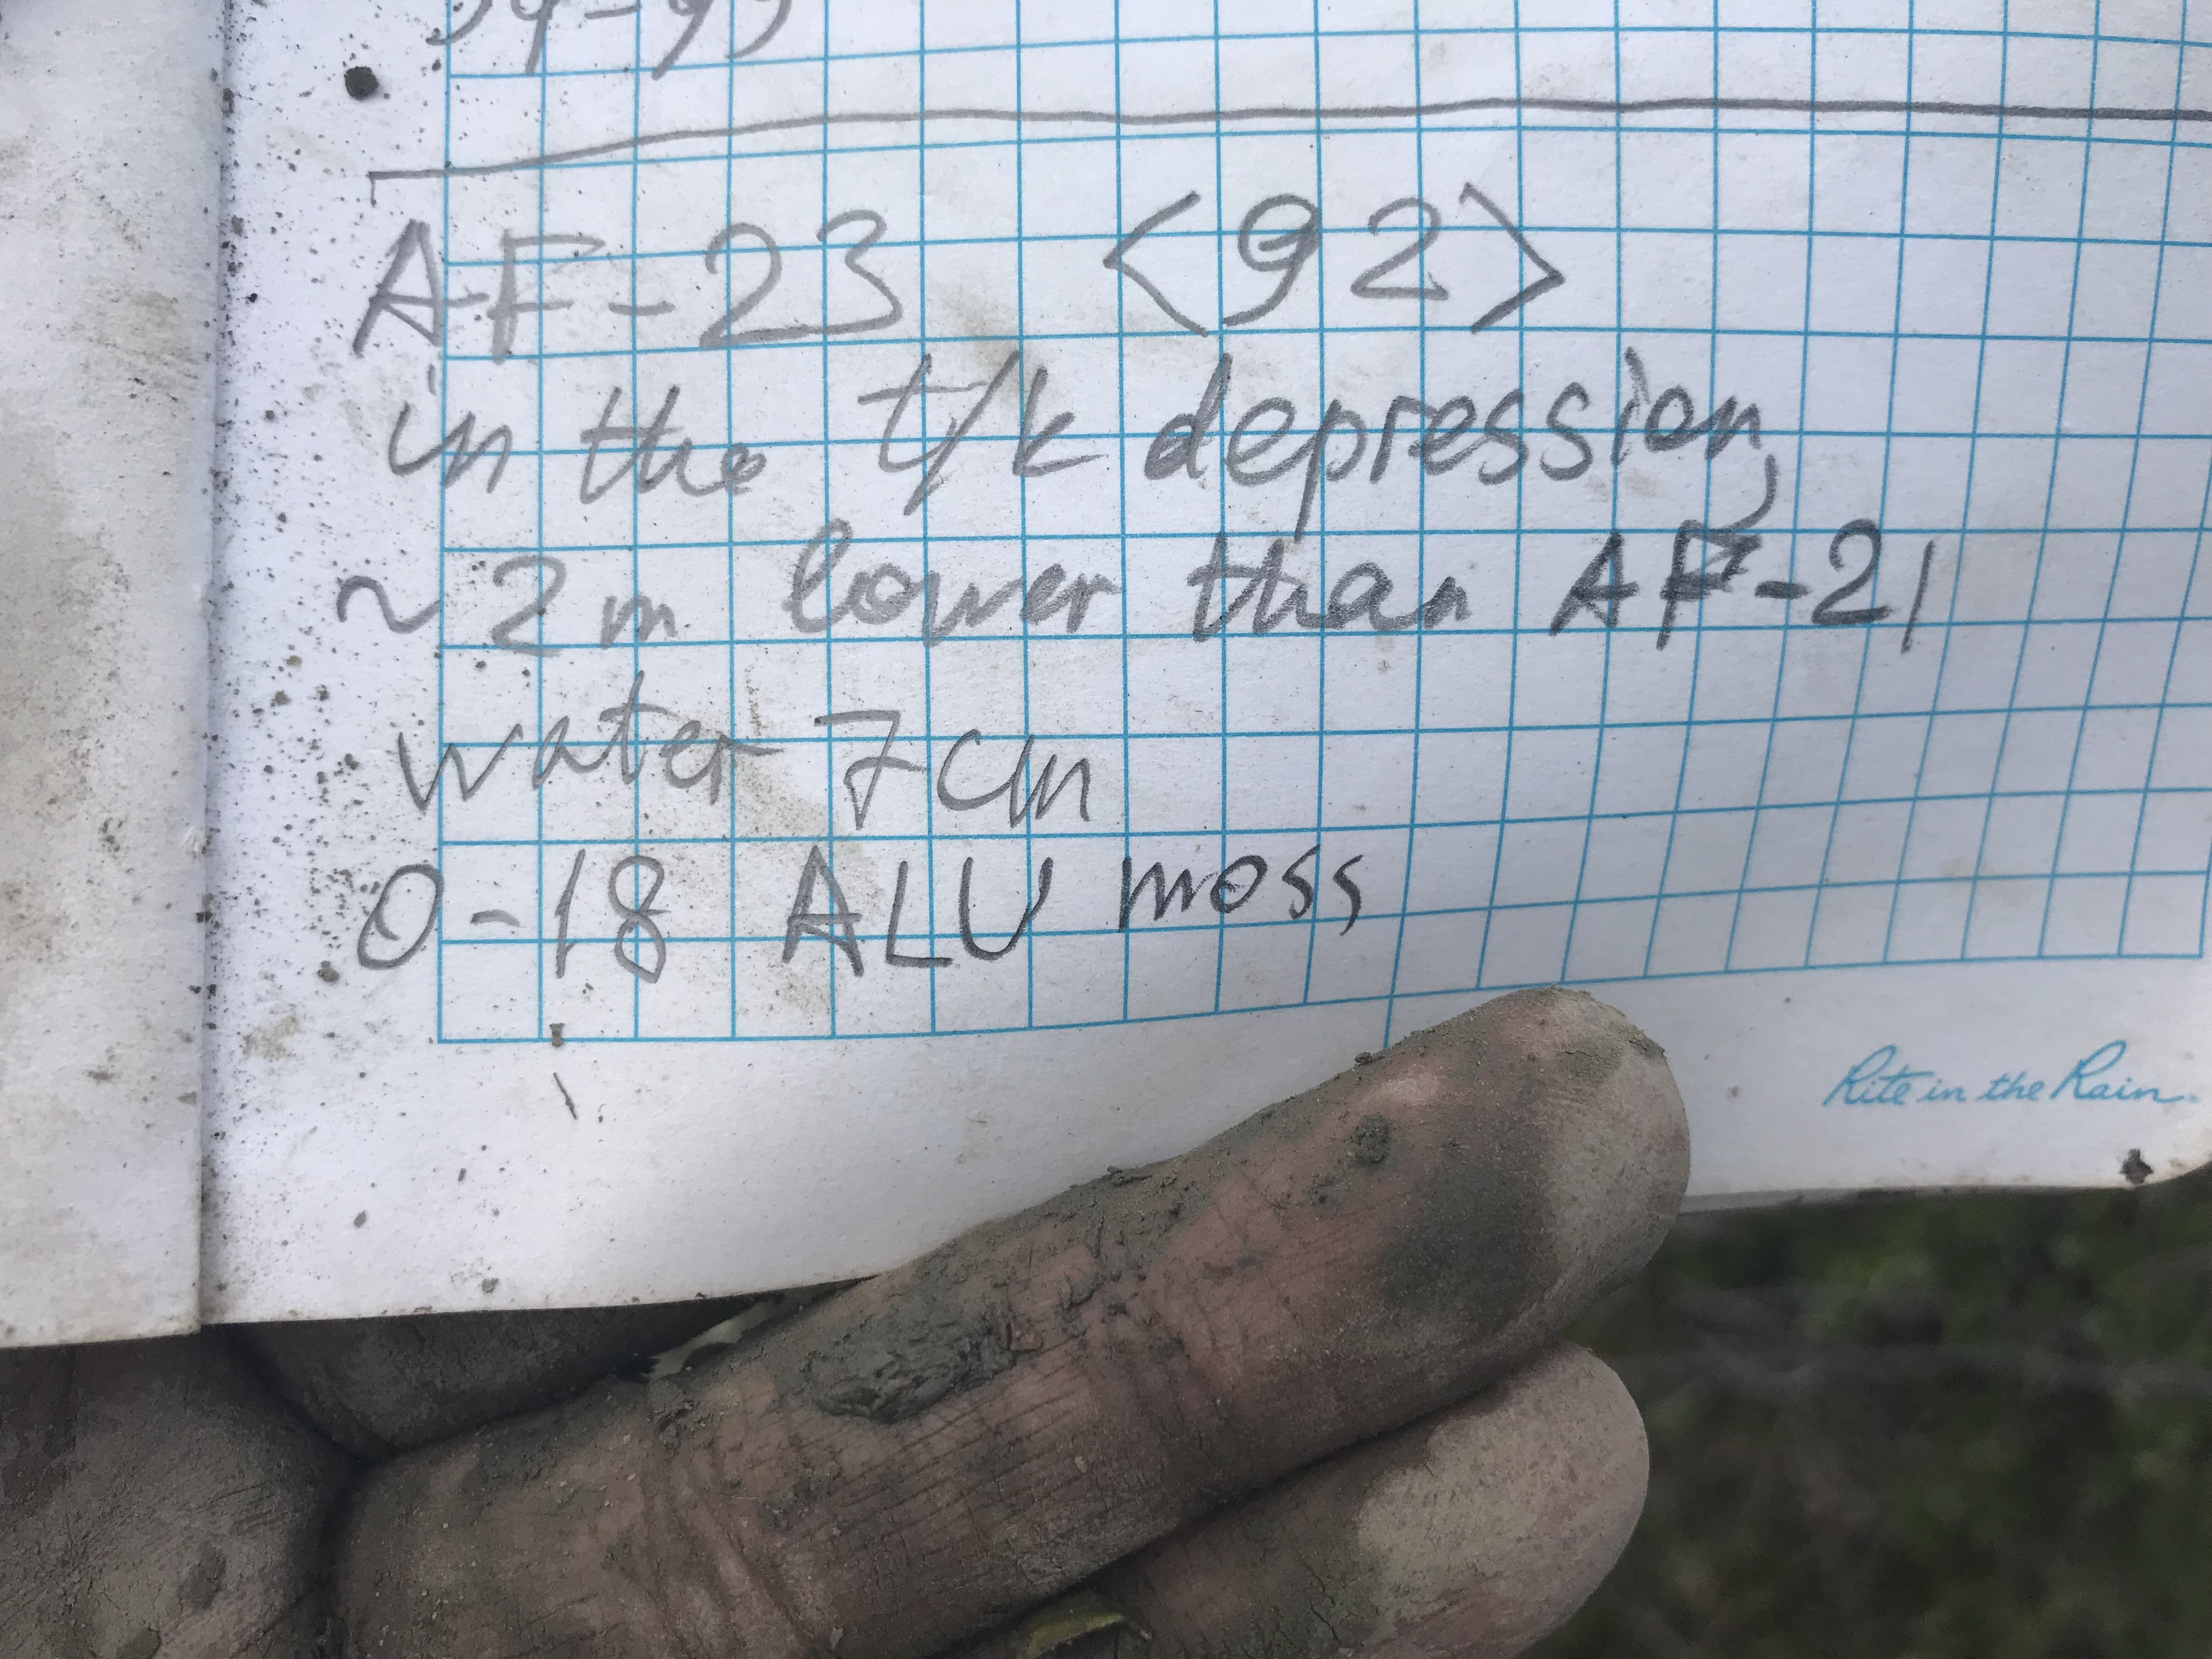 AF-23 <92>
in the t/k depression,
~2m lower than AF-21
water 7cm
0-18 ALU moss
Rite in the Rain